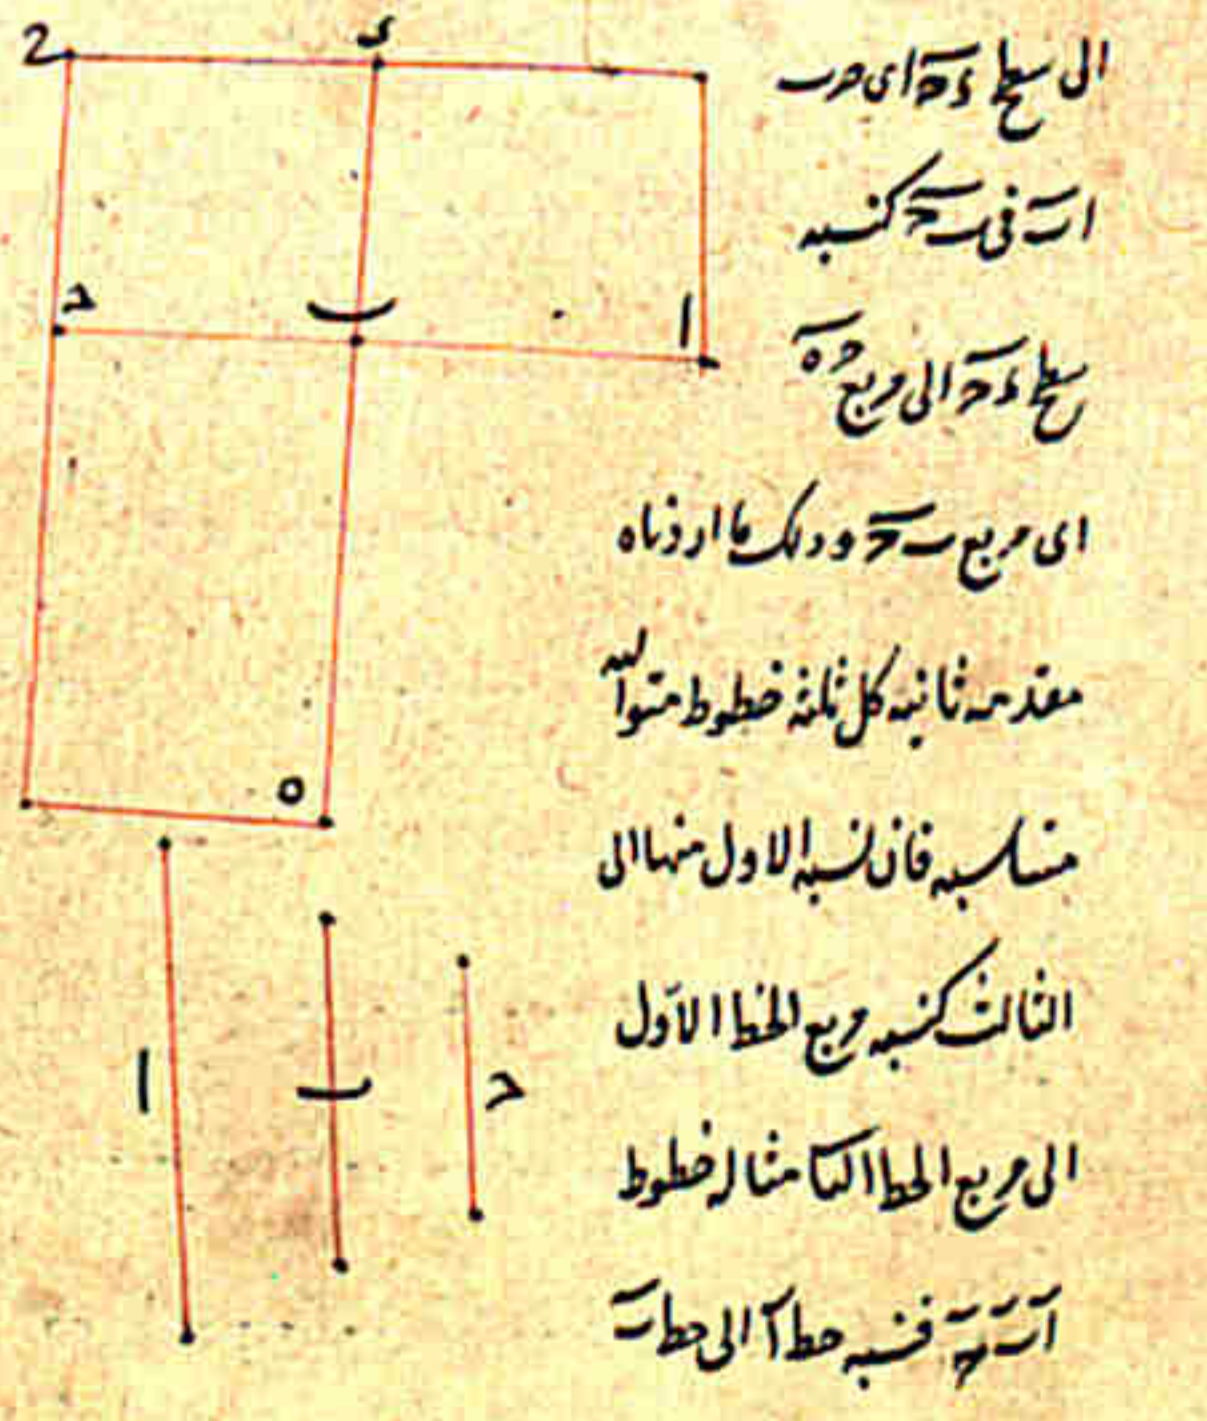 الى سطح ءح اى ضرب
اب فى بح كنسبه
سطح ءح الى مربع حه
اى مربع بح وذلك ما اردناه
مقدمه ثانيه كل ثلثه خطوط متواليه
متناسبه فان نسبه الاول منها الى
الثالث كنسبه مربع الخط الاول
الى مربع الخط الثانى مثاله خطوط
ا ب ح فنسبه خط ا الى خط ب
ء
ح
ب
ا
ه
ا
ب
ح